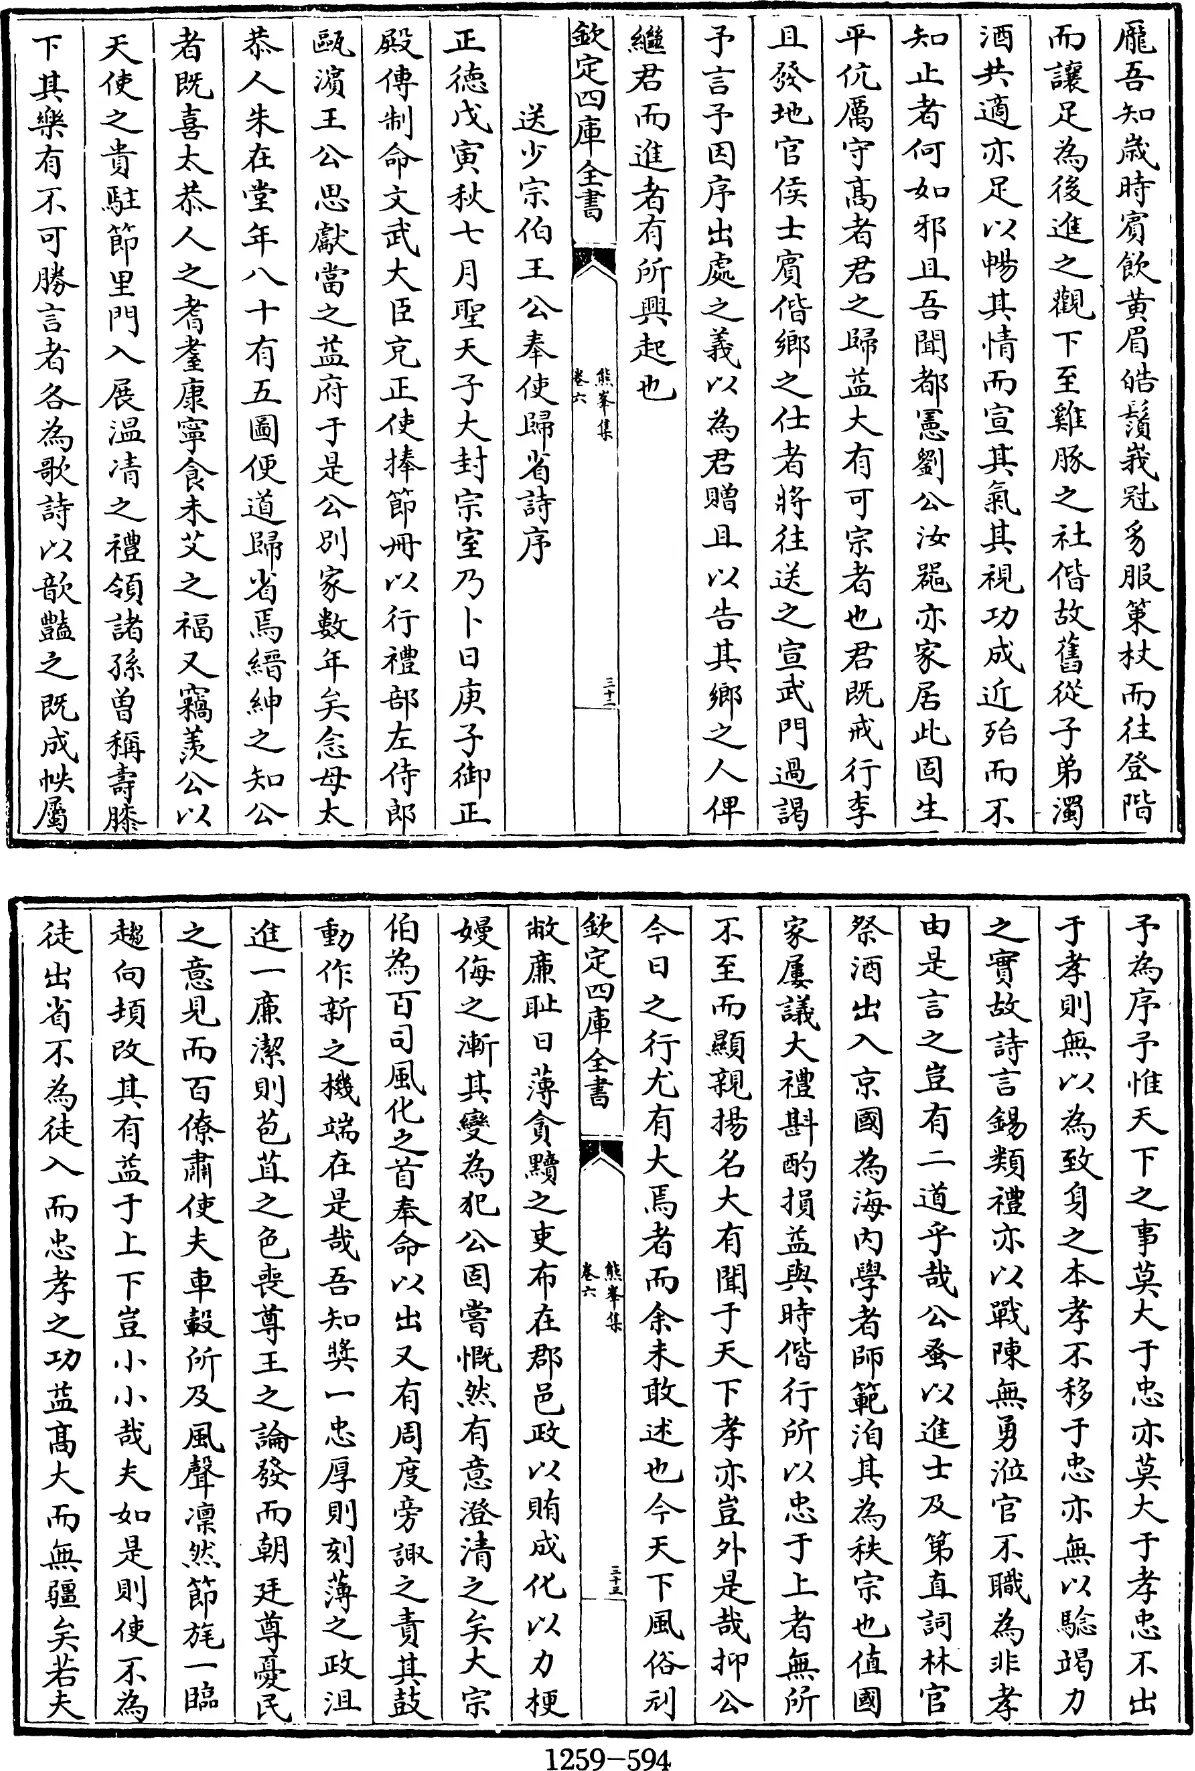 龎吾知歳時賓飲黄眉皓鬚峩冠豸服策杖而往登階
而讓足為後進之觀下至雞豚之社偕故舊從子弟濁
酒共適亦足以暢其情而宣其氣其視功成近殆而不
知止者何如邪且吾聞都憲劉公汝噐亦家居此固生
平伉厲守髙者君之歸益大有可宗者也君既戒行李
且發地官侯士賓偕鄉之仕者將往送之宣武門過謁
予言予因序出處之義以為君贈且以告其鄉之人俾
繼君而進者有所興起也
欽定四庫全書
熊峯集
卷六
三十二
送少宗伯王公奉使歸省詩序
正德戊寅秋七月聖天子大封宗室乃卜日庚子御正
殿傳制命文武大臣充正使捧節冊以行禮部左侍郎
甌濵王公思獻當之益府于是公別家數年矣念母太
恭人朱在堂年八十有五圖便道歸省焉縉紳之知公
者既喜太恭人之耆耋康寧食未艾之福又竊羡公以
天使之貴駐節里門入展温凊之禮領諸孫曽稱壽膝
下其樂有不可勝言者各為歌詩以歆豔之既成帙屬
予為序予惟天下之事莫大于忠亦莫大于孝忠不出
于孝則無以為致身之本孝不移于忠亦無以騐竭力
之實故詩言錫類禮亦以戰陳無勇涖官不職為非孝
由是言之豈有二道乎哉公蚤以進士及第直詞林官
祭酒出入京國為海内學者師範洎其為秩宗也值國
家屢議大禮斟酌損益與時偕行所以忠于上者無所
不至而顯親揚名大有聞于天下孝亦豈外是哉抑公
今日之行尤有大焉者而余未敢述也今天下風俗刓
欽定四庫全書
熊峯集
卷六
三十三
敝亷耻日薄貪黷之吏布在郡邑政以賄成化以力梗
嫚侮之漸其變為犯公固嘗慨然有意澄清之矣大宗
伯為百司風化之首奉命以出又有周度旁諏之責其鼓
動作新之機端在是哉吾知奬一忠厚則刻薄之政沮
進一亷潔則苞苴之色喪尊王之論發而朝廷尊憂民
之意見而百僚肅使夫車轂所及風聲凛然節旄一臨
趨向頓改其有益于上下豈小小哉夫如是則使不為
徒出省不為徒入而忠孝之功益髙大而無疆矣若夫
1259－594